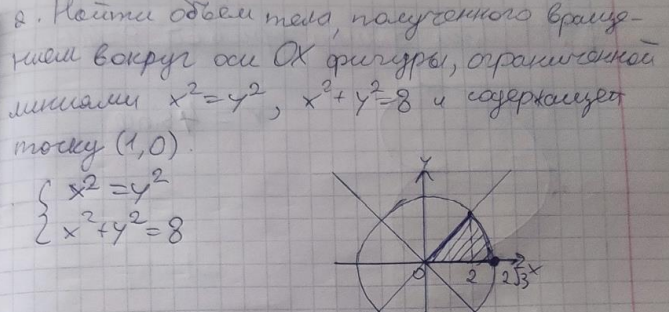 2. Найти объем тела, полученного враще-
нием вокруг оси OX фигуры, ограниченной
линиями x² = y², x² + y² = 8 и содержащей
точку (1,0).
{ x² = y²
x² + y² = 8
y
0 2 2√3 x